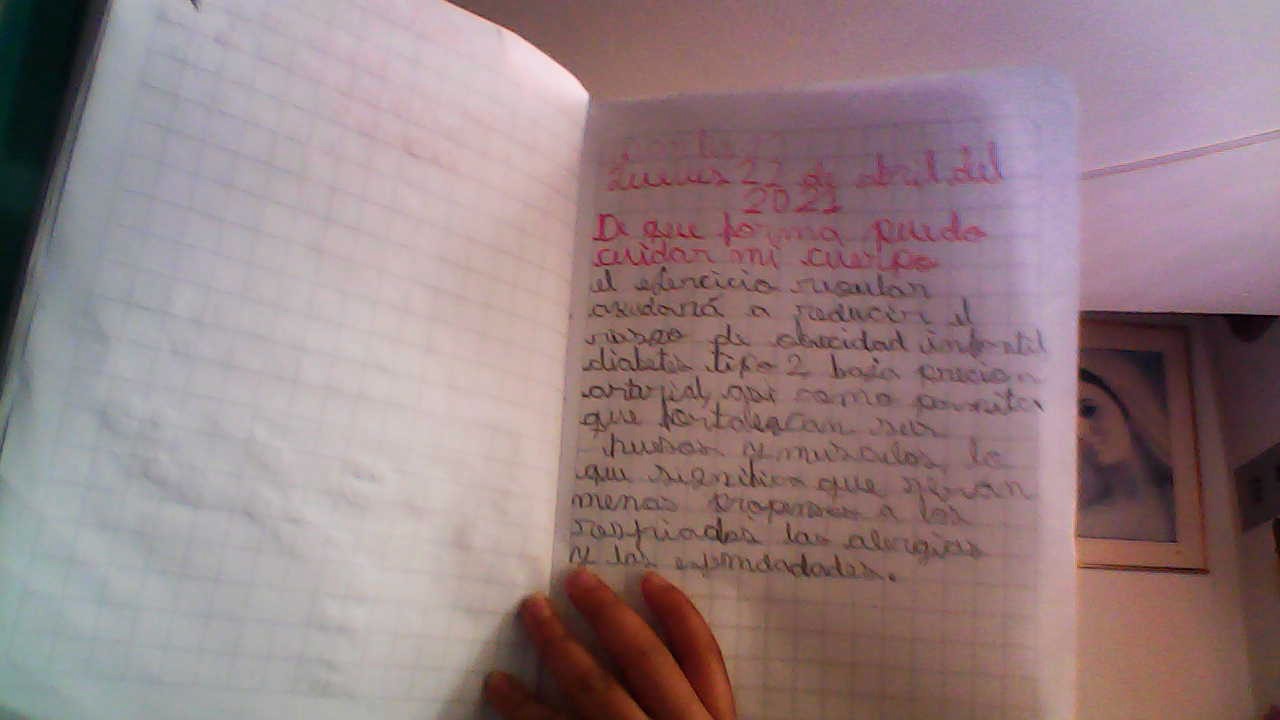 Lunes 27 de abril del
2021
De que forma puedo
cuidar mi cuerpo
el ejercicio regular
ayudará a reducir el
riesgo de obecidad infantil
diabetes tipo 2 baja precion
arterial, asi como permiten
que fortalezcan sus
huesos y musculos, lo
que significa que seran
menos propensos a los
resfriados las alergias
y las